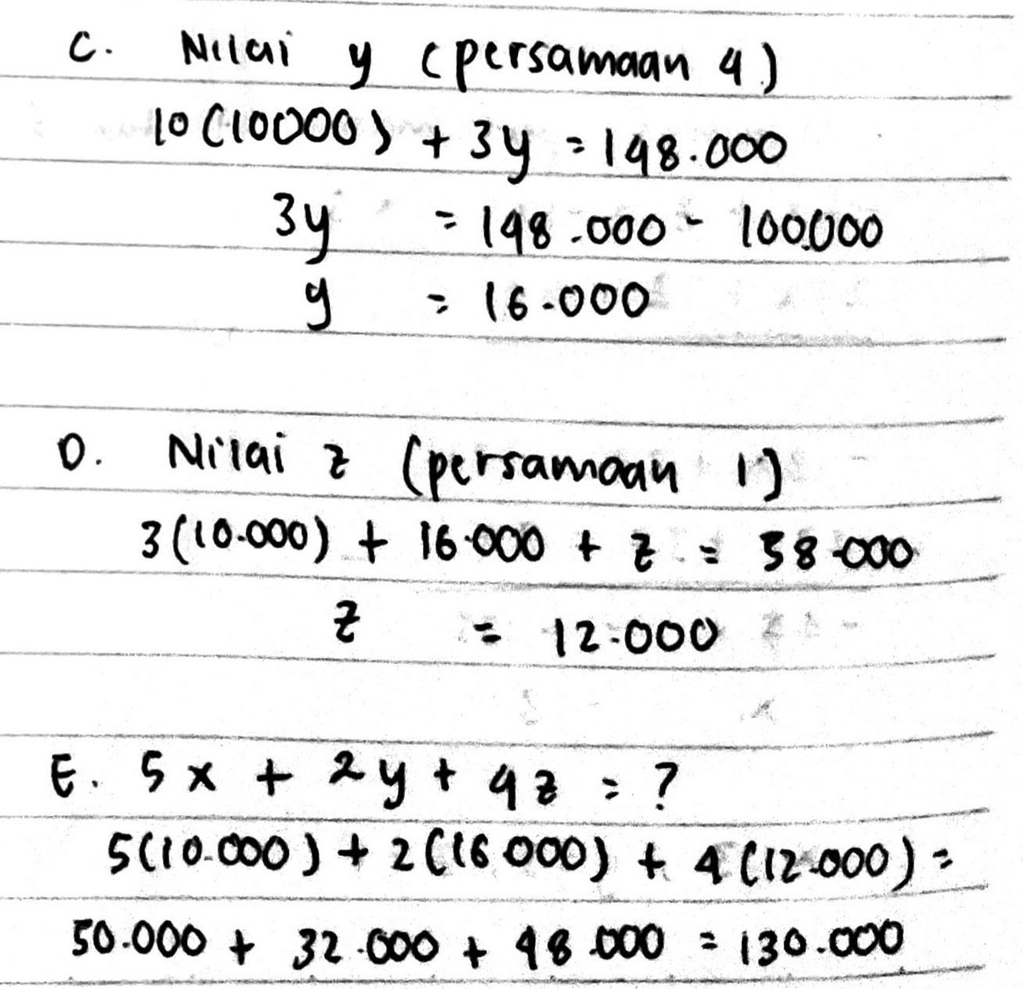 C. Nilai y (persamaan 4)
10(10000) + 3y = 148.000
3y = 148.000 - 100.000
y = 16.000
D. Nilai z (persamaan 1)
3(10.000) + 16.000 + z = 58.000
z = 12.000
E. 5x + 2y + 4z = ?
5(10.000) + 2(16.000) + 4(12.000) =
50.000 + 32.000 + 48.000 = 130.000